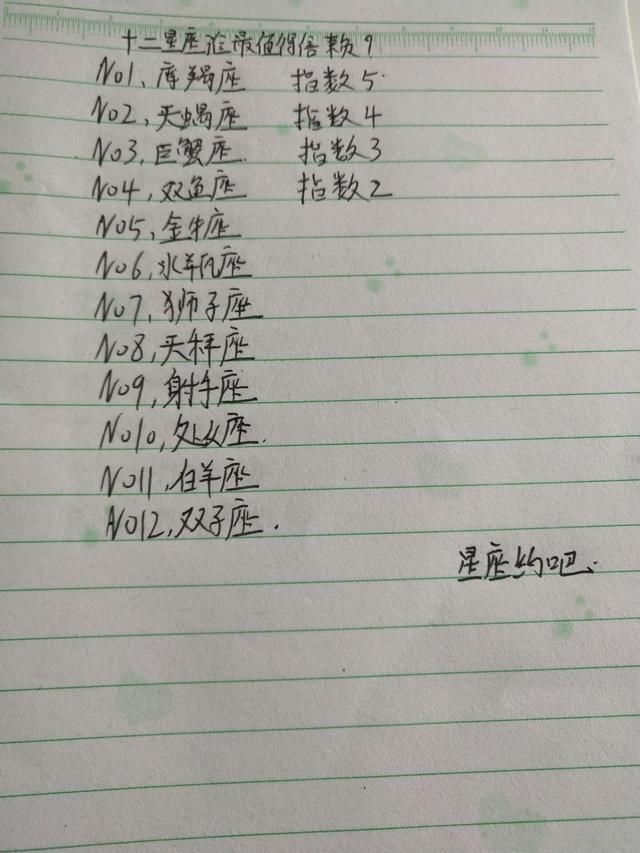 十二星座谁最值得信赖?
No1、摩羯座 指数5
No2,天蝎座 指数4
No3,巨蟹座 指数3
No4,双鱼座 指数2
No5、金牛座
No6,水瓶座
No7,狮子座
No8,天秤座
No9,射手座
No10,处女座.
No11,白羊座
No12,双子座.
星座约吧.